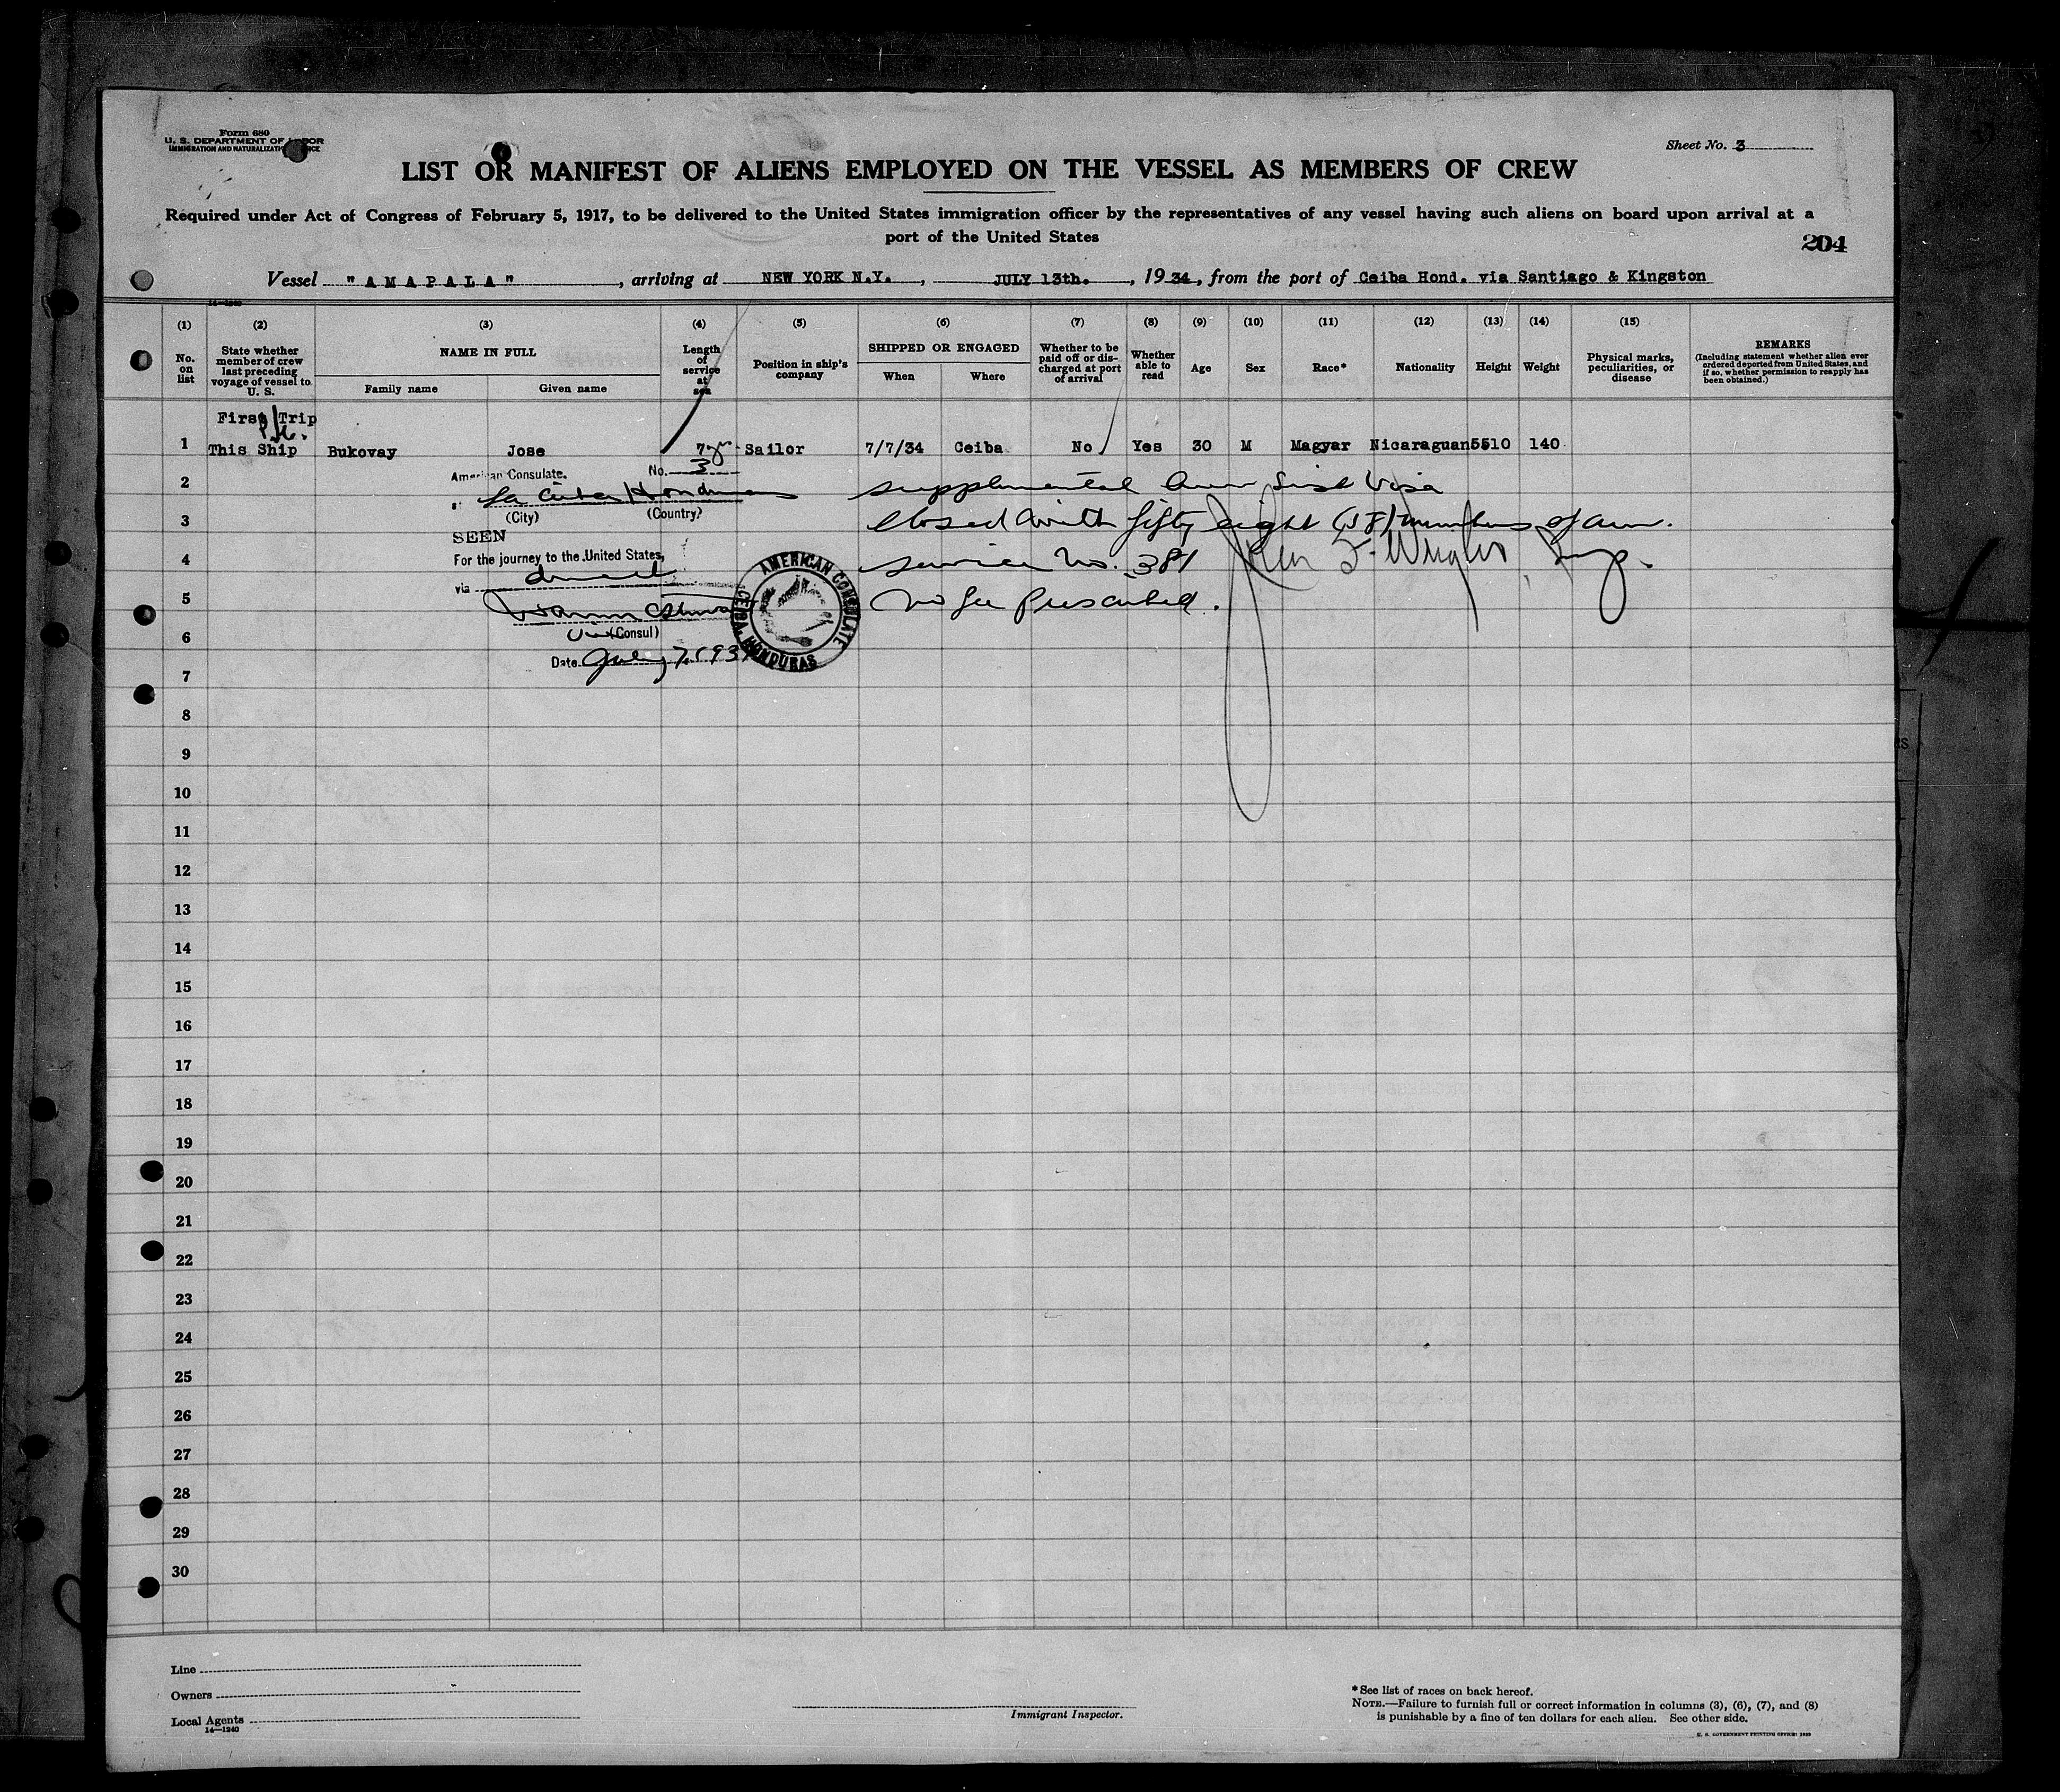 Form 680
U. S. DEPARTMENT OF LABOR
IMMIGRATION AND NATURALIZATION SERVICE
Sheet No. 3
LIST OR MANIFEST OF ALIENS EMPLOYED ON THE VESSEL AS MEMBERS OF CREW
Required under Act of Congress of February 5, 1917, to be delivered to the United States immigration officer by the representatives of any vessel having such aliens on board upon arrival at a
port of the United States
204
Vessel "AMAPALA", arriving at NEW YORK N.Y., JULY 13th., 1934, from the port of Ceiba Hond. via Santiago & Kingston
14—1240
(1) (2) (3) (4) (5) (6) (7) (8) (9) (10) (11) (12) (13) (14) (15)
No. on list
State whether member of crew last preceding voyage of vessel to U. S.
NAME IN FULL
Family name Given name
Length of service at sea
Position in ship's company
SHIPPED OR ENGAGED
When Where
Whether to be paid off or discharged at port of arrival
Whether able to read
Age
Sex
Race*
Nationality
Height
Weight
Physical marks, peculiarities, or disease
REMARKS
(Including statement whether alien ever ordered deported from United States, and if so, whether permission to reapply has been obtained.)
First Trip
1 This Ship Bukovay Jose 7 yr Sailor 7/7/34 Ceiba No Yes 30 M Magyar Nicaraguan 5510 140
American Consulate. No. 3
La Ceiba Honduras
(City) (Country)
SEEN
For the journey to the United States,
via direct
Vice (Consul)
Date July 7, 193
AMERICAN CONSULATE
CEIBA, HONDURAS
supplemental crew list visa
closed with fifty eight (58) members of crew.
service No. 381
No fee prescribed.
2
3
4
5
6
7
8
9
10
11
12
13
14
15
16
17
18
19
20
21
22
23
24
25
26
27
28
29
30
Line
Owners
Local Agents
14—1240
Immigrant Inspector.
*See list of races on back hereof.
NOTE.—Failure to furnish full or correct information in columns (3), (6), (7), and (8)
is punishable by a fine of ten dollars for each alien. See other side.